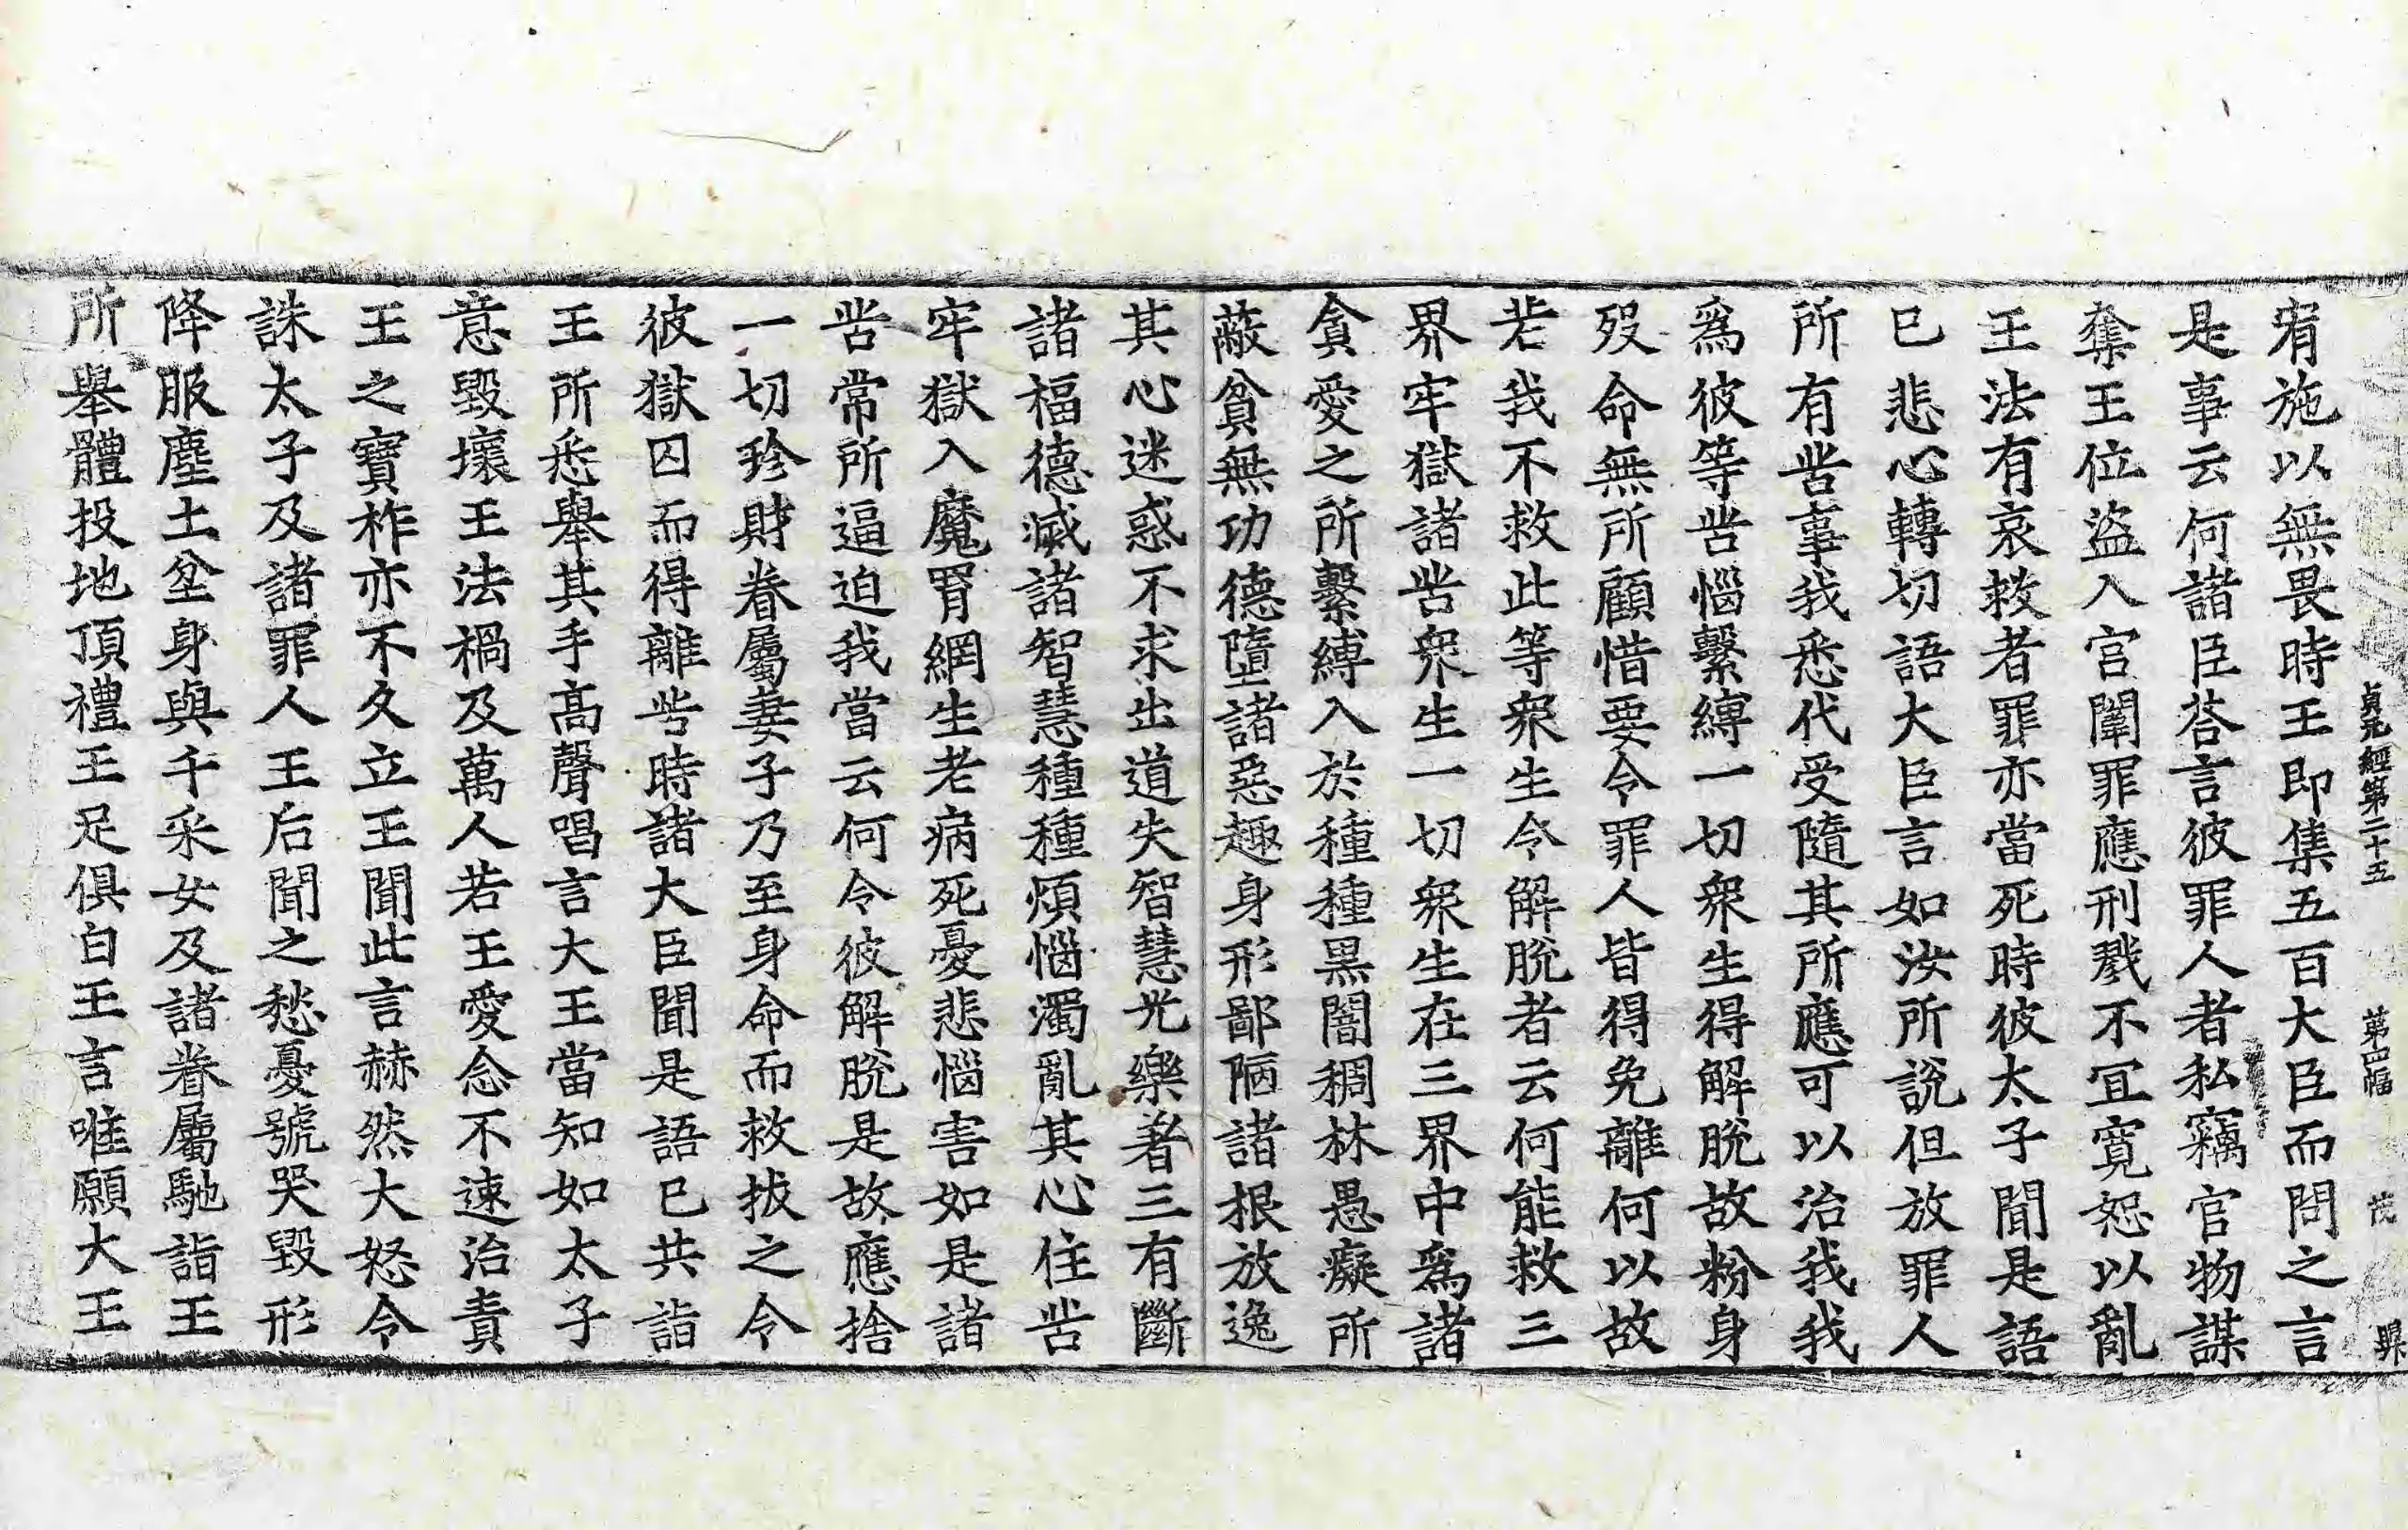 貞元經第二十五 第四幅 茂
宥施以無畏時王即集五百大臣而問之言
是事云何諸臣荅言彼罪人者私竊官物謀
奪王位盜入宮闈罪應刑戮不冝寬恕以亂
王法有哀救者罪亦當死時彼太子聞是語
已悲心轉切語大臣言如汝所說但放罪人
所有苦事我悉代受隨其所應可以治我我
爲彼等苦惱繫縛一切衆生得解脫故粉身
歿命無所顧惜要令罪人皆得免離何以故
若我不救此等衆生令解脫者云何能救三
界牢獄諸苦衆生一切衆生在三界中爲諸
貪愛之所繫縛入於種種黒闇稠林愚癡所
蔽貧無功德墮諸惡趣身形鄙陋諸根放逸
其心迷惑不求出道失智慧光樂著三有斷
諸福德滅諸智慧種種煩惱濁亂其心住苦
牢獄入魔罥網生老病死憂悲惱害如是諸
苦常所逼迫我當云何令彼解脫是故應捨
一切珍財眷屬妻子乃至身命而救拔之令
彼獄囚而得離苦時諸大臣聞是語已共詣
王所悉舉其手高聲唱言大王當知如太子
意毀壞王法禍及萬人若王愛念不速治責
王之寶祚亦不久立王聞此言赫然大怒令
誅太子及諸罪人王后聞之愁憂號哭毀形
降服塵土坌身與千采女及諸眷屬馳詣王
所舉體投地頂禮王足俱白王言唯願大王